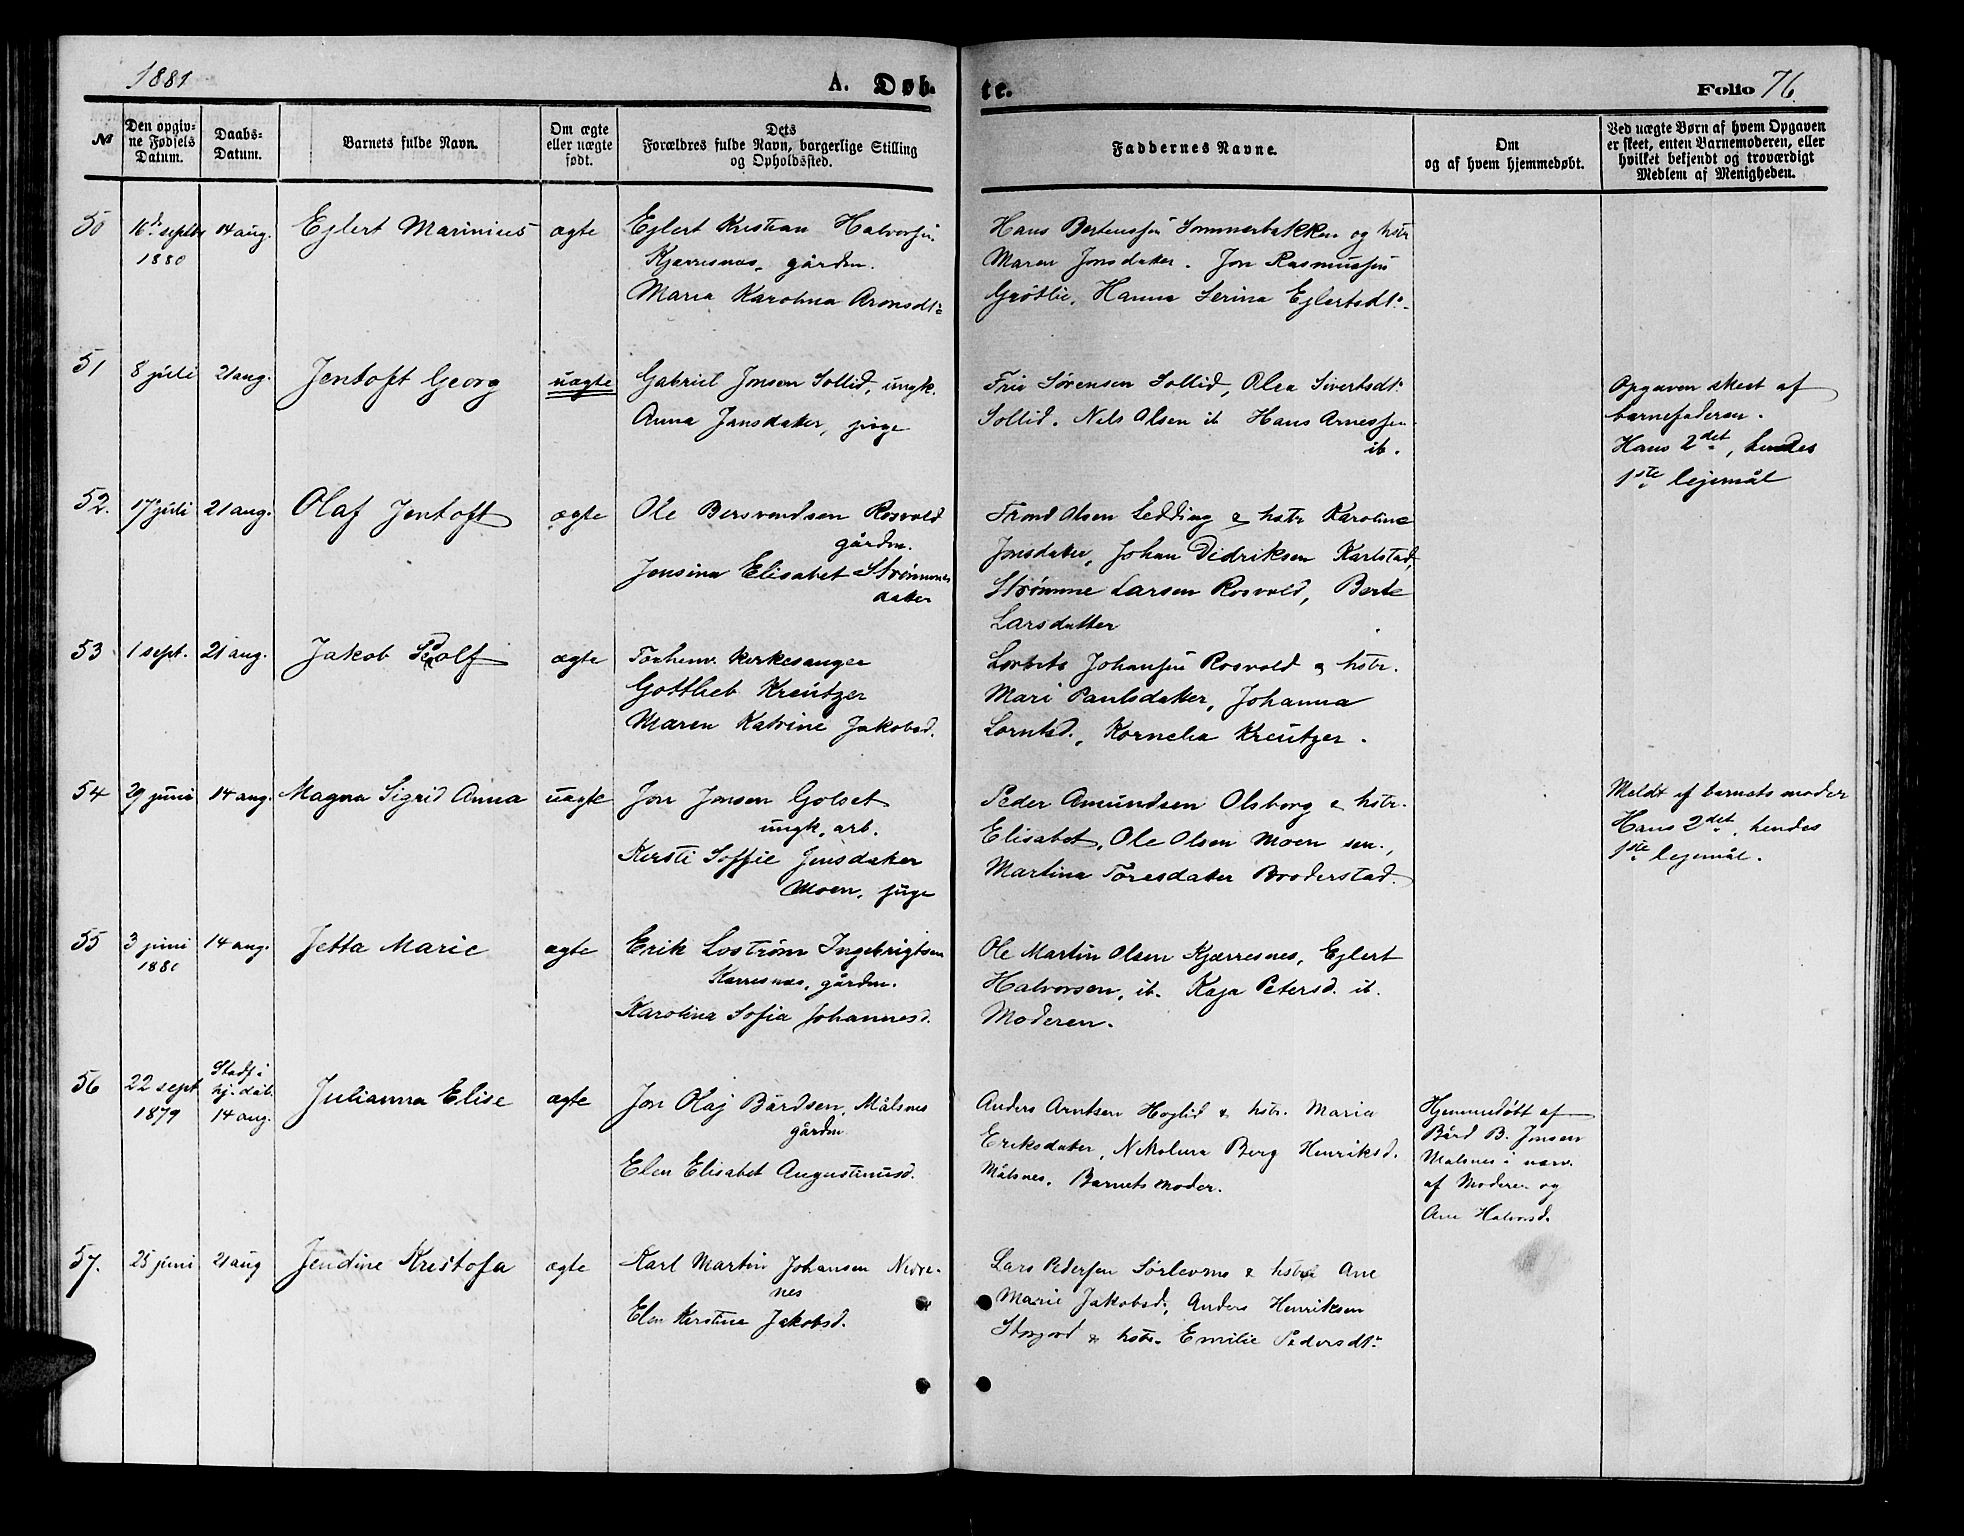 1881
A. Døb-
te.
Folio 76.
№
Den opgiv-
ne Fødsels
Datum.
Daabs-
Datum.
Barnets fulde Navn.
Om ægte
eller uægte
født.
Dets
Forældres fulde Navn, borgerlige Stilling
og Opholdssted.
Faddernes Navne.
Om
og af hvem hjemmedøbt.
Ved uægte Børn af hvem Opgaven
er skeet, enten Barnemoderen, eller
hvilket bekjendt og troværdigt
Medlem af Menigheden.
50
16de septbr
1880
14 aug.
Ejlert Marinius
ægte
Ejlert Kristian Halvorsen
Kjærresnæs, gårdm.
Maria Karolina Aronsdtr
Hans Berteussen Sommerbakken og hstr
Maren Jonsdater. Jon Rasmussen
Grøtlie, Hanna Serina Ejlertsdtr.
51
8 juli
21 aug.
Jentoft Georg
uægte
Gabriel Jonsen Sollid, ungk.
Anna Jansdater, pige
Sørensen Sollid, Olea Sivertsdtr
Sollid. Nels Olsen ib Hans Arnessen
ib.
Opgaven skeet af
barnefaderen.
Hans 2det, hendes
1ste lejemål
52.
17 juli
21 aug.
Olaf Jentoft
ægte
Ole Bersvendsen Rosvold
gårdm.
Jensina Elisabet Strømmes
dater
Trond Olsen Ledding & hstr Karoline
Jonsdater, Johan Didriksen Karlstad,
Strømme Larsen Rosvold, Berte
Larsdatter
53
1 sept.
21 aug.
Jakob Rolf
ægte
Forhenv. kirkesanger
Gottlieb Kreutzer
Maren Katrine Jakobsd.
Johansen Rosvold & hstr.
Mari Paulsdater, Johanna
Lorntsd., Kornelia Kreutzer.
54
29 juni
14 aug.
Magna Sigrid Anna
uægte
Jon Jonsen Golset
ungk, arb.
Kersti Soffie Jensdater
Moen, pige
Peder Amundsen Olsborg & hstr.
Elisabet, Ole Olsen Moen sen.,
Martina Toresdater Broderstad.
Meldt af barnets moder
Hans 2det, hendes
1ste lejemål.
55
3 juni
1880
14 aug.
Jetta Marie
ægte
Erik Lostrøm Ingebrigtsen
Kærresnæs, gårdm.
Karolina Sofia Johannesd.
Ole Martin Olsen Kjærresnes, Ejlert
Halvorsen, ib. Kaja Petersd. ib.
Moderen.
56
22 sept
1879
Stadf. i
hj. dåb.
14 aug.
Julianna Elise
ægte
Jon Olaj Bårdsen, Målsnes
gårdm
Elen Elisabet Augustinusd.
Anders Arntsen Høglid & hstr. Maria
Eriksdater, Nikolina Berg Henriksd.
Målsnes. Barnets moder.
Hjemmedøbt af
Bård B. Jonsen
Målsnes i nærv.
af Moderen og
Ane Halvorsd.
57.
25 juni
21 aug
Jendine Kristofa
ægte
Karl Martin Johansen Nevre-
nes
Elen Kirstina Jakobsd.
Lars Pedersen Sørlevme & hstr Ane
Marie Jakobsd, Anders Henriksen
Storjord & hstr. Emilie Pedersdtr